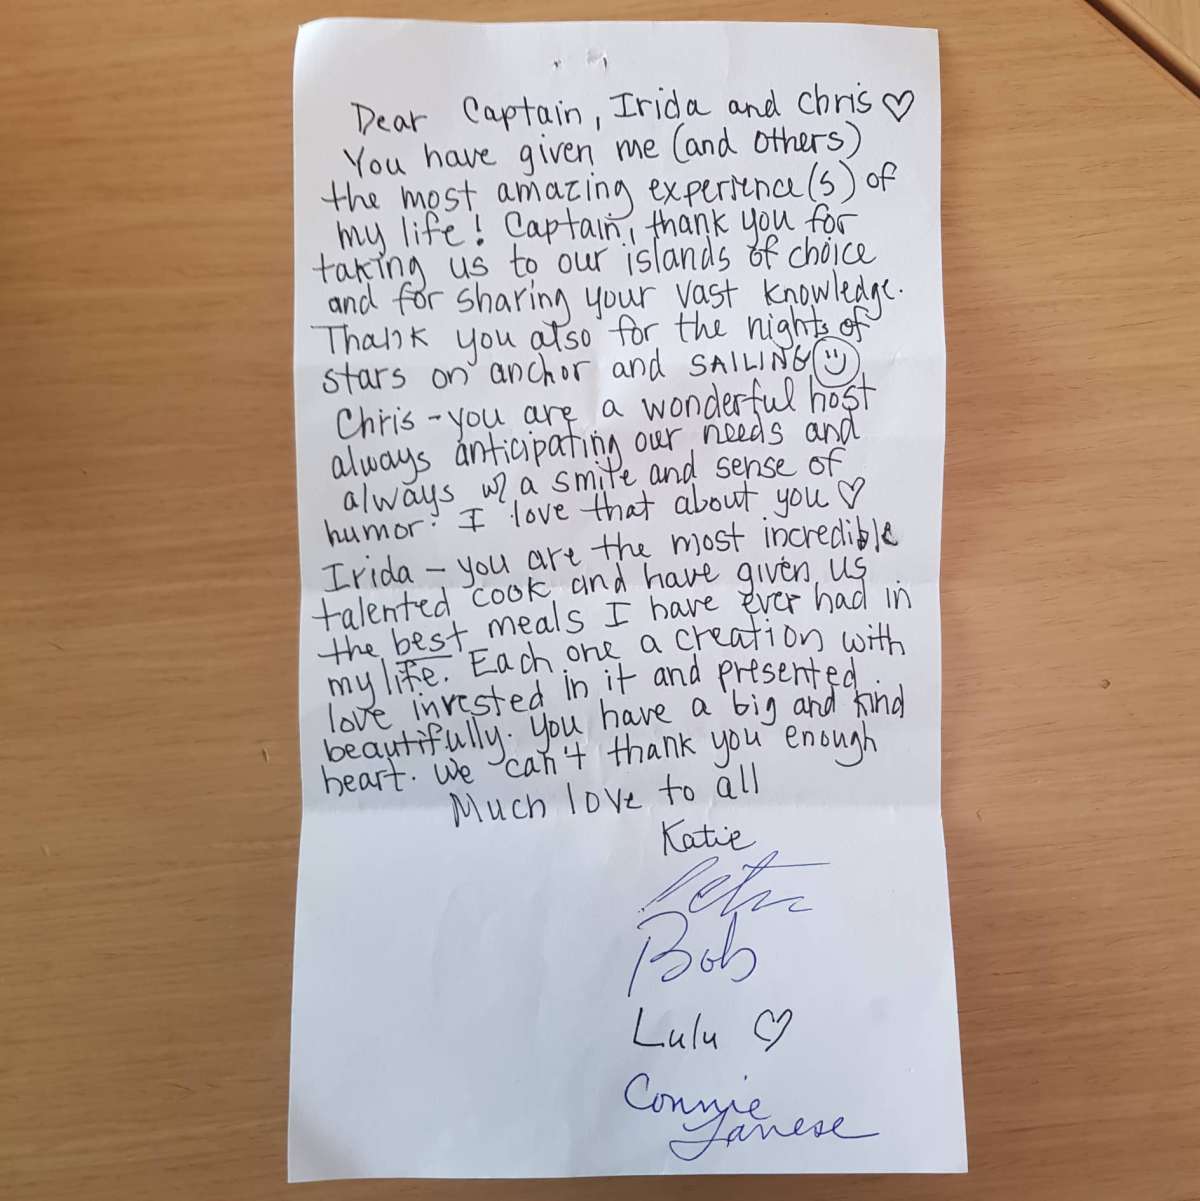 Dear Captain, Irida and Chris ♡
You have given me (and others)
the most amazing experience(s) of
my life! Captain, thank you for
taking us to our islands of choice
and for sharing your vast knowledge.
Thank you also for the nights of
stars on anchor and SAILING ☺
Chris - you are a wonderful host
always anticipating our needs and
always w/ a smile and sense of
humor. I love that about you ♡
Irida - you are the most incredible
talented cook and have given us
the best meals I have ever had in
my life. Each one a creation with
love invested in it and presented
beautifully. You have a big and kind
heart. We can't thank you enough
Much love to all
Katie
Bob
Lulu ♡
Connie